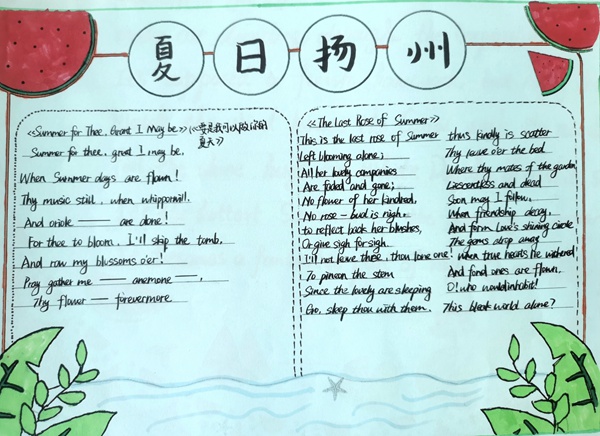 夏日扬州
<<Summer for Thee. Grant I May be>> (<<要是我可以做你的
夏天>>
Summer for thee. grant I may be.
When Summer days are flown!
Thy music still. when whipporwill.
And oriole —— are done!
For thee to bloom. I'll skip the tomb.
And row my blossoms o'er!
Pray gather me —— anemone ——.
Thy flower —— forevermore
<<The Last Rose of Summer>>
This is the last rose of Summer
Left blooming alone;
All her lovely companies
Are faded and gone;
No flower of her kindred,
No rose - bud is nigh.
to reflect back her blushes,
Or give sigh for sigh.
I'll not leave thee. thou lone one!
To pine on the stem
Since the lovely are sleeping
Go. sleep thou with them.
thus kindly is scatter
Thy leave o'er the bed
Where thy mates of the garden
Lie scentless and dead
Soon may I follow.
When friendship decay,
And form Love's shining circle
The gems drop away
when true hearts lie withered
And fond ones are flown.
O! who would inhibit!
This bleak world alone?